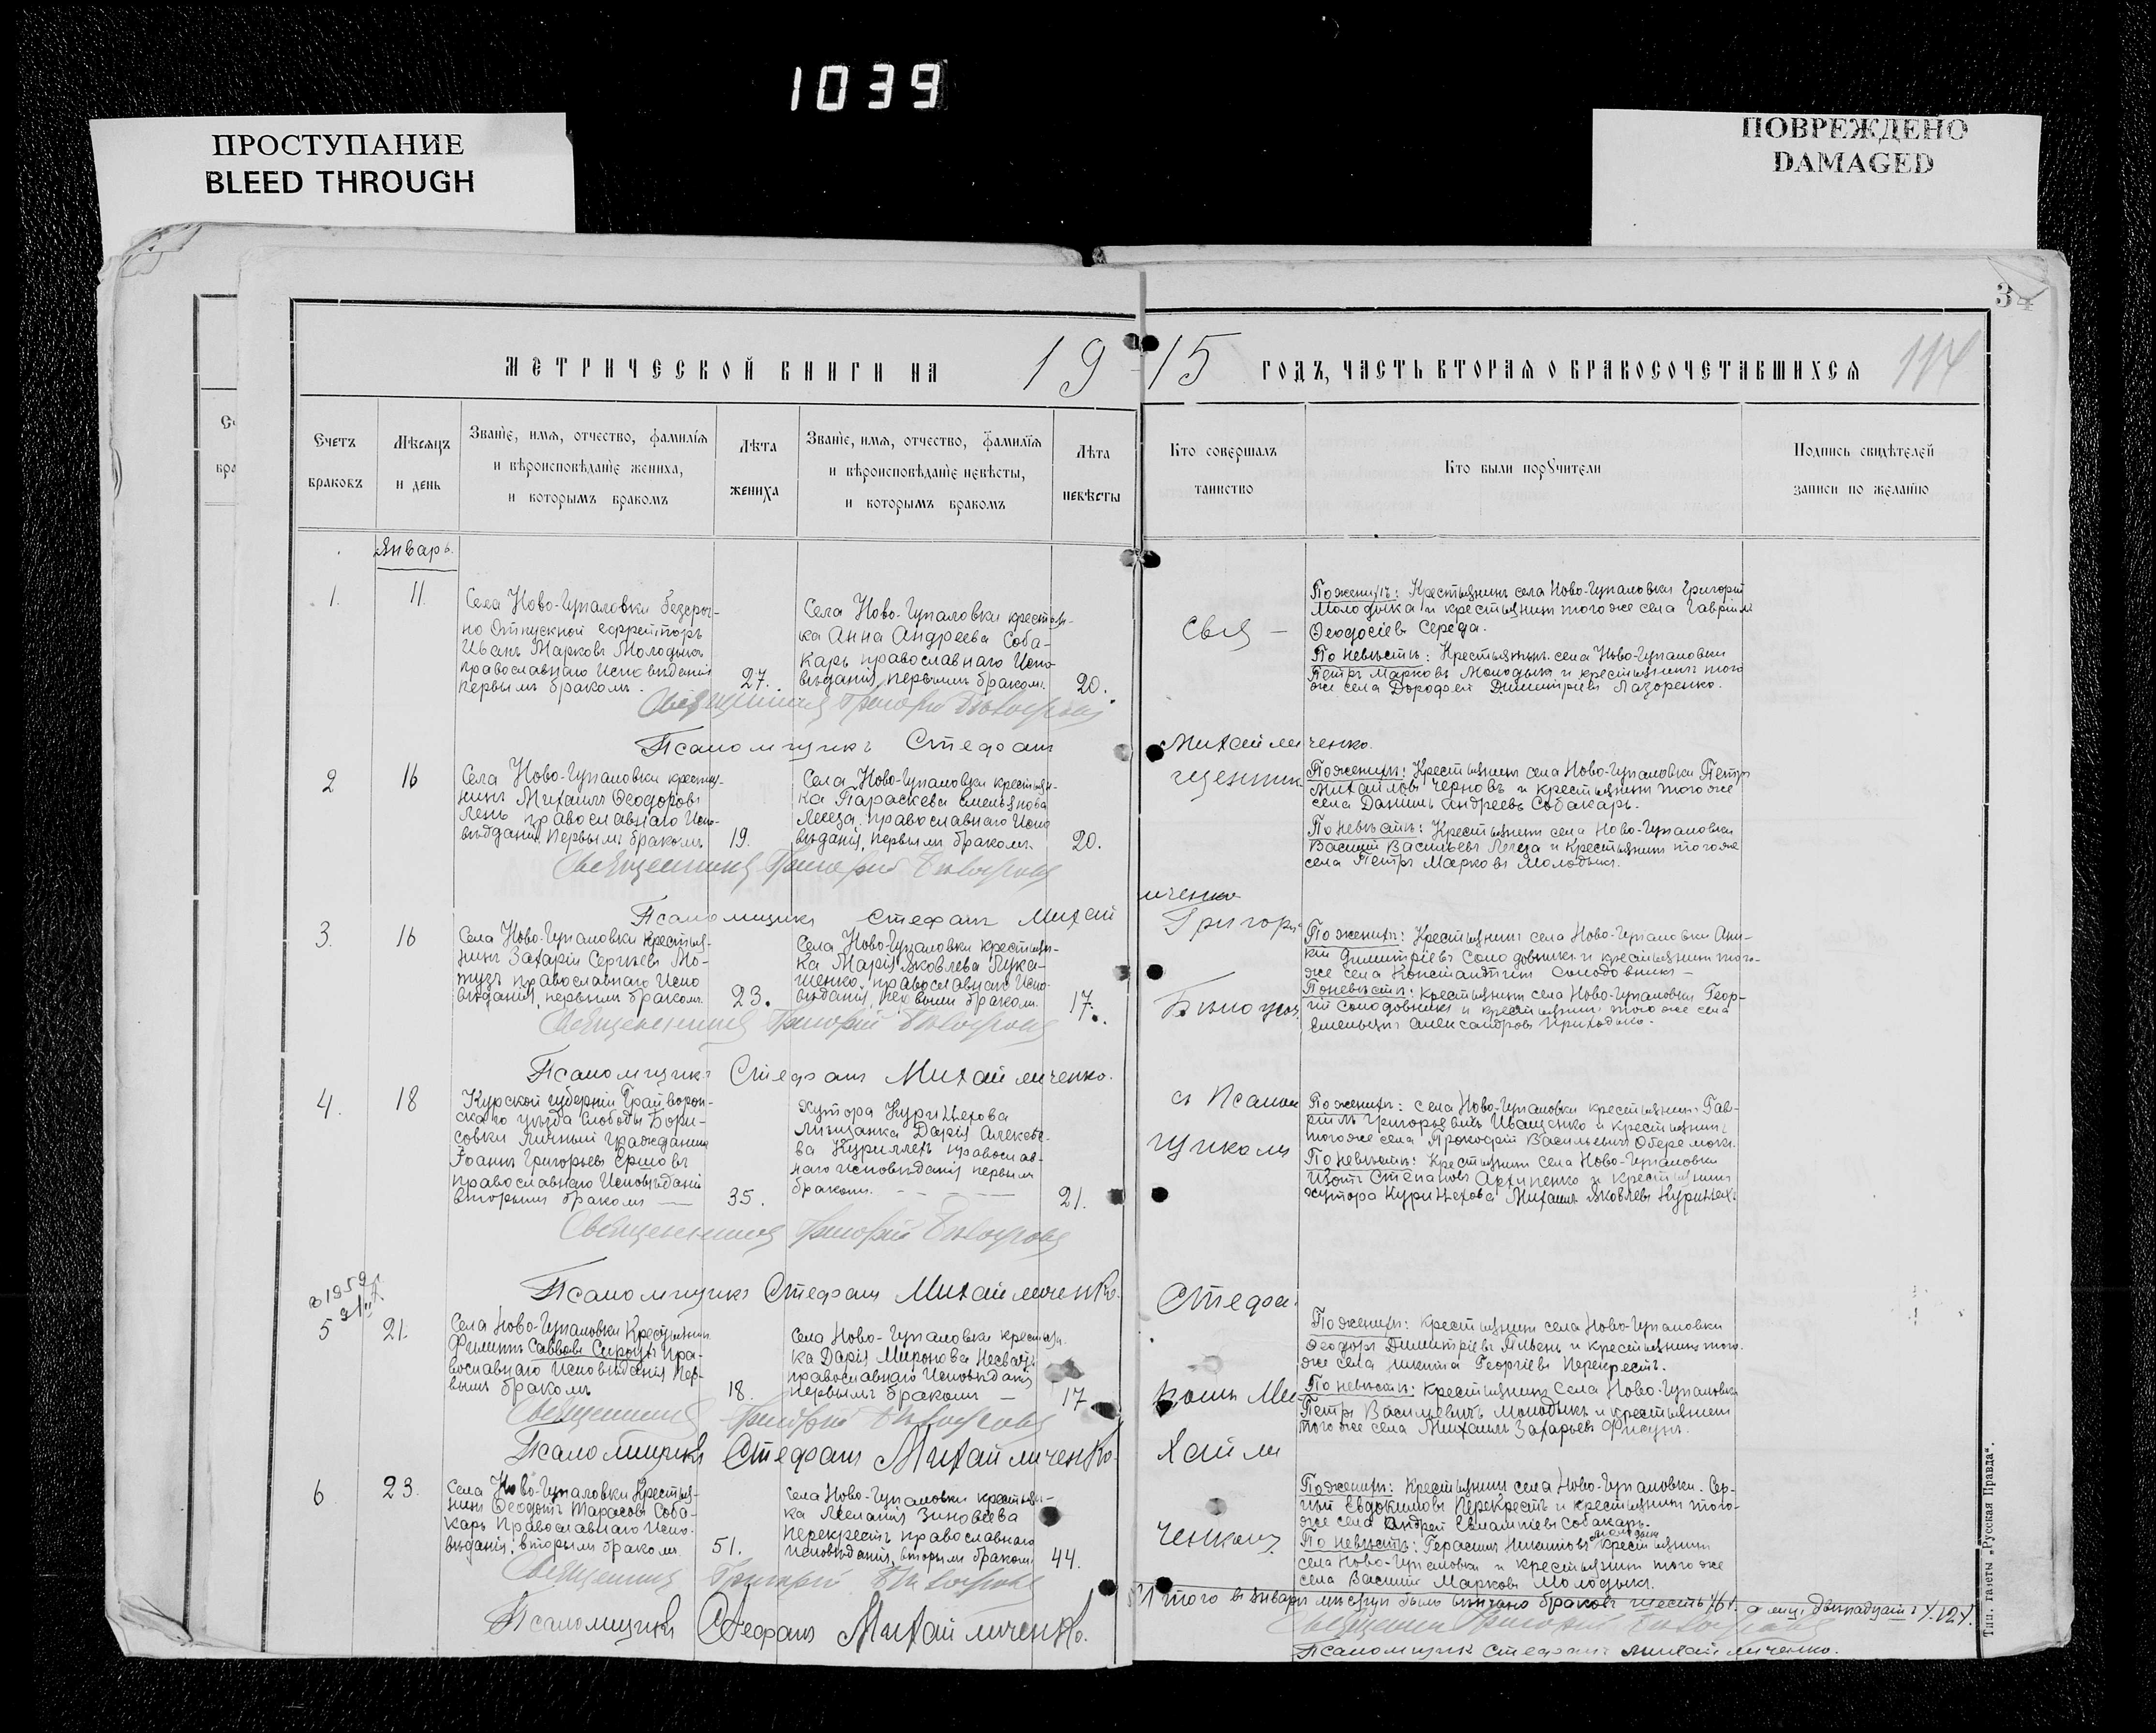 1039
ПРОСТУПАНИЕ
BLEED THROUGH
ПОВРЕЖДЕНО
DAMAGED
34
114
МЕТРИЧЕСКОЙ КНИГИ НА 1915 ГОДЪ, ЧАСТЬ ВТОРАЯ О БРАКОСОЧЕТАВШИХСЯ
Счетъ
браковъ
Мѣсяцъ
и день
Званіе, имя, отчество, фамилія
и вѣроисповѣданіе жениха,
и которымъ бракомъ
Лѣта
жениха
Званіе, имя, отчество, фамилія
и вѣроисповѣданіе невѣсты,
и которымъ бракомъ
Лѣта
невѣсты
Кто совершалъ
таинство
Кто были поручители
Подпись свидѣтелей
записи по желанію
Январь.
1.
11.
Села Ново-Гупаловки безсроч-
но Отпускной еффрейторъ
Иванъ Марковъ Молодыкъ
православнаго Исповѣданія
первымъ бракомъ.
27.
Села Ново-Гупаловки крестьян-
ка Анна Андреева Соба-
карь православнаго Испо-
вѣданія, первымъ бракомъ.
20.
Свя
По женихѣ: Крестьянинъ села Ново-Гупаловки Григорій
Молодыка и крестьянинъ того же села Гавріилъ
Ѳеодосіевъ Середа.
По невѣстѣ: Крестьянинъ села Ново-Гупаловки
Петръ Марковъ Молодыкъ и крестьянинъ того
же села Дорофей Димитріевъ Лазоренко.
Священникъ Григорій
Псаломщикъ Стефанъ Михайличенко.
2
16
Села Ново-Гупаловки крестья-
нинъ Михаилъ Ѳеодоровъ
православнаго Испо-
вѣданія Первымъ бракомъ
19.
Села Ново-Гупаловки крестьян-
ка Параскева Емельянова
Легеза, православнаго Испо
вѣданія, первымъ бракомъ.
20.
щенник
По женихѣ: Крестьянинъ села Ново-Гупаловки Петръ
Михайловъ Черновъ и крестьянинъ того же
села Даніилъ Андреевъ Собакарь.
По невѣстѣ: Крестьянинъ села Ново-Гупаловки
Василій Васильевъ Легеза и крестьянинъ того же
села Петръ Марковъ Молодыкъ.
Священникъ Григорій
Псаломщикъ Стефанъ Михайличенко
3.
16
Села Ново-Гупаловки Крестья-
нинъ Захарій Сергѣевъ Мо-
тузъ православнаго Испо
вѣданія, первымъ бракомъ.
23.
Села Ново-Гупаловки крестьян-
ка Марія Яковлева Лука-
шенко, православнаго Испо-
вѣданія, первымъ бракомъ.
17.
Григорі
По женихѣ: Крестьянинъ села Ново-Гупаловки
Димитріевъ Солодовникъ и крестьянинъ того-
же села Константинъ Солодовникъ
По невѣстѣ: Крестьянинъ села Ново-Гупаловки Геор-
гій Солодовникъ и крестьянинъ того же села
Емельянъ Александровъ Приходько.
Священникъ Григорій
Псаломщикъ Стефанъ Михайличенко.
4.
18
Курской губерніи Грайворон-
скаго уѣзда Слободы Бори-
совки Личный Гражданинъ
Іоаннъ Григорьевъ Ершовъ
православнаго Исповѣданія
вторымъ бракомъ
35.
Хутора Куриліехова
мѣщанка Дарія Алексѣе-
ва православ-
наго исповѣданія первымъ
бракомъ.
21.
съ Псалом
щиком
По женихѣ: Села Ново-Гупаловки крестьянинъ Гав-
ріилъ Григорьевичъ Иващенко и Крестьянинъ
того же села Прокофій Васильевичъ
По невѣстѣ: Крестьянинъ села Ново-Гупаловки
Изотъ Степановъ Архипенко и крестьянинъ
хутора Михаилъ Яковлевъ
Священникъ Григорій
Псаломщикъ Стефанъ Михайличенко.
5
21.
Села Ново-Гупаловки Крестьянинъ
Филиппъ Саввовъ Сирота Пра-
вославнаго Исповѣданія Пер-
вымъ бракомъ
18.
Села Ново-Гупаловки крестьян.
ка Дарія Миронова
православнаго Исповѣданія
первымъ бракомъ
17
Стефа
номъ Ми
хайли
По женихѣ: Крестьянинъ села Ново-Гупаловки
Ѳеодоръ Димитріевъ Пивень и Крестьянинъ того-
же села Никита Георгіевъ Перекрестъ.
По невѣстѣ: Крестьянинъ Села Ново-Гупаловки
Петръ Васильевичъ Молодыкъ и крестьянинъ
того же села Михаилъ Захарьевъ Фисунъ.
Священникъ Григорій
Псаломщикъ Стефанъ Михайличенко
6
23.
Села Ново-Гупаловки Крестья-
нинъ Ѳеодотъ Тарасовъ Соба-
карь Православнаго Испо-
вѣданія, вторымъ бракомъ.
51.
Села Ново-Гупаловки крестьян-
ка Меланія Зиновіева
Перекрестъ православнаго
исповѣданія, вторымъ бракомъ
44.
ченком
По женихѣ: Крестьянинъ села Ново-Гупаловки Сер-
гій Евдокимовъ Перекрестъ и крестьянинъ того-
же села Андрей Евлампіевъ Собакарь.
По невѣстѣ: Герасимъ Никитовъ Молодыкъ Крестьянинъ
села Ново-Гупаловки и крестьянинъ того же
села Василій Марковъ Молодыкъ.
Священникъ Григорій
Псаломщикъ Стефанъ Михайличенко.
Итого въ Январѣ мѣсяцѣ было вѣнчано браковъ шесть /6/. а лицъ двѣнадцать /12/.
Священникъ Григорій
Псаломщик Стефанъ Михайличенко.
Тип. газеты „Русская Правда“.